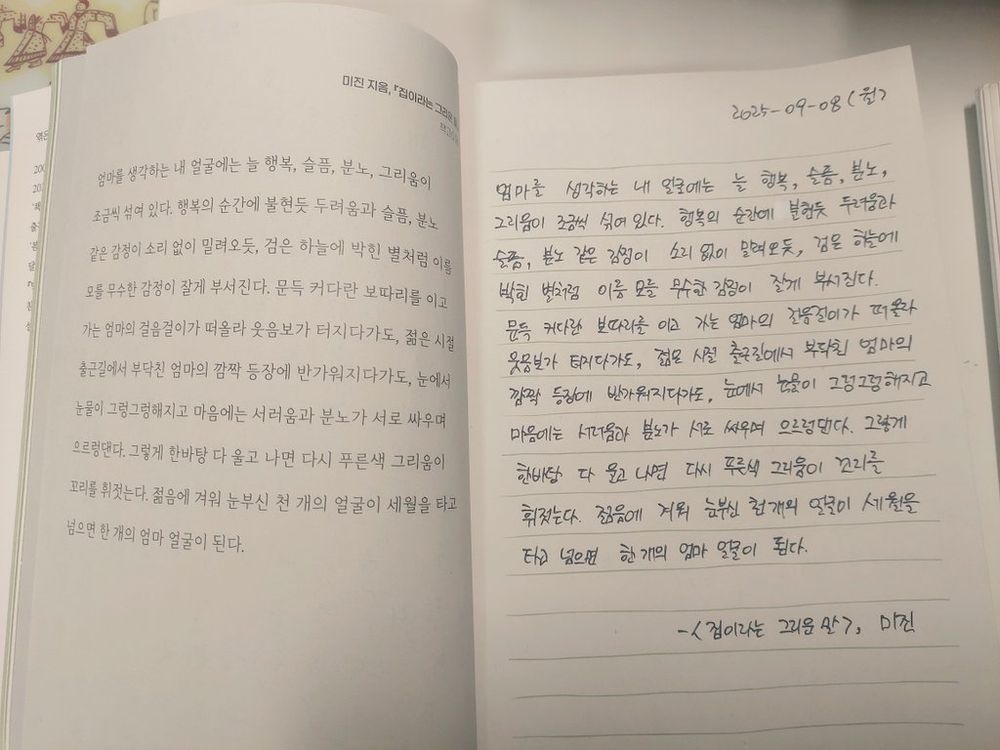 미진 지음, 『집이라는 그리운
엄마를 생각하는 내 얼굴에는 늘 행복, 슬픔, 분노, 그리움이
조금씩 섞여 있다. 행복의 순간에 불현듯 두려움과 슬픔, 분노
같은 감정이 소리 없이 밀려오듯, 검은 하늘에 박힌 별처럼 이름
모를 무수한 감정이 잘게 부서진다. 문득 커다란 보따리를 이고
가는 엄마의 걸음걸이가 떠올라 웃음보가 터지다가도, 젊은 시절
출근길에서 부닥친 엄마의 깜짝 등장에 반가워지다가도, 눈에서
눈물이 그렁그렁해지고 마음에는 서러움과 분노가 서로 싸우며
으르렁댄다. 그렇게 한바탕 다 울고 나면 다시 푸른색 그리움이
꼬리를 휘젓는다. 젊음에 겨워 눈부신 천 개의 얼굴이 세월을 타고
넘으면 한 개의 엄마 얼굴이 된다.
2025-09-08 (월)
엄마를 생각하는 내 얼굴에는 늘 행복, 슬픔, 분노,
그리움이 조금씩 섞여 있다. 행복의 순간에 불현듯 두려움과
슬픔, 분노 같은 감정이 소리 없이 밀려오듯, 검은 하늘에
박힌 별처럼 이름 모를 무수한 감정이 잘게 부서진다.
문득 커다란 보따리를 이고 가는 엄마의 걸음걸이가 떠올라
웃음보가 터지다가도, 젊은 시절 출근길에서 부닥친 엄마의
깜짝 등장에 반가워지다가도, 눈에서 눈물이 그렁그렁해지고
마음에는 서러움과 분노가 서로 싸우며 으르렁댄다. 그렇게
한바탕 다 울고 나면 다시 푸른색 그리움이 꼬리를
휘젓는다. 젊음에 겨워 눈부신 천 개의 얼굴이 세월을
타고 넘으면 한 개의 엄마 얼굴이 된다.
-<집이라는 그리운 말>, 미진